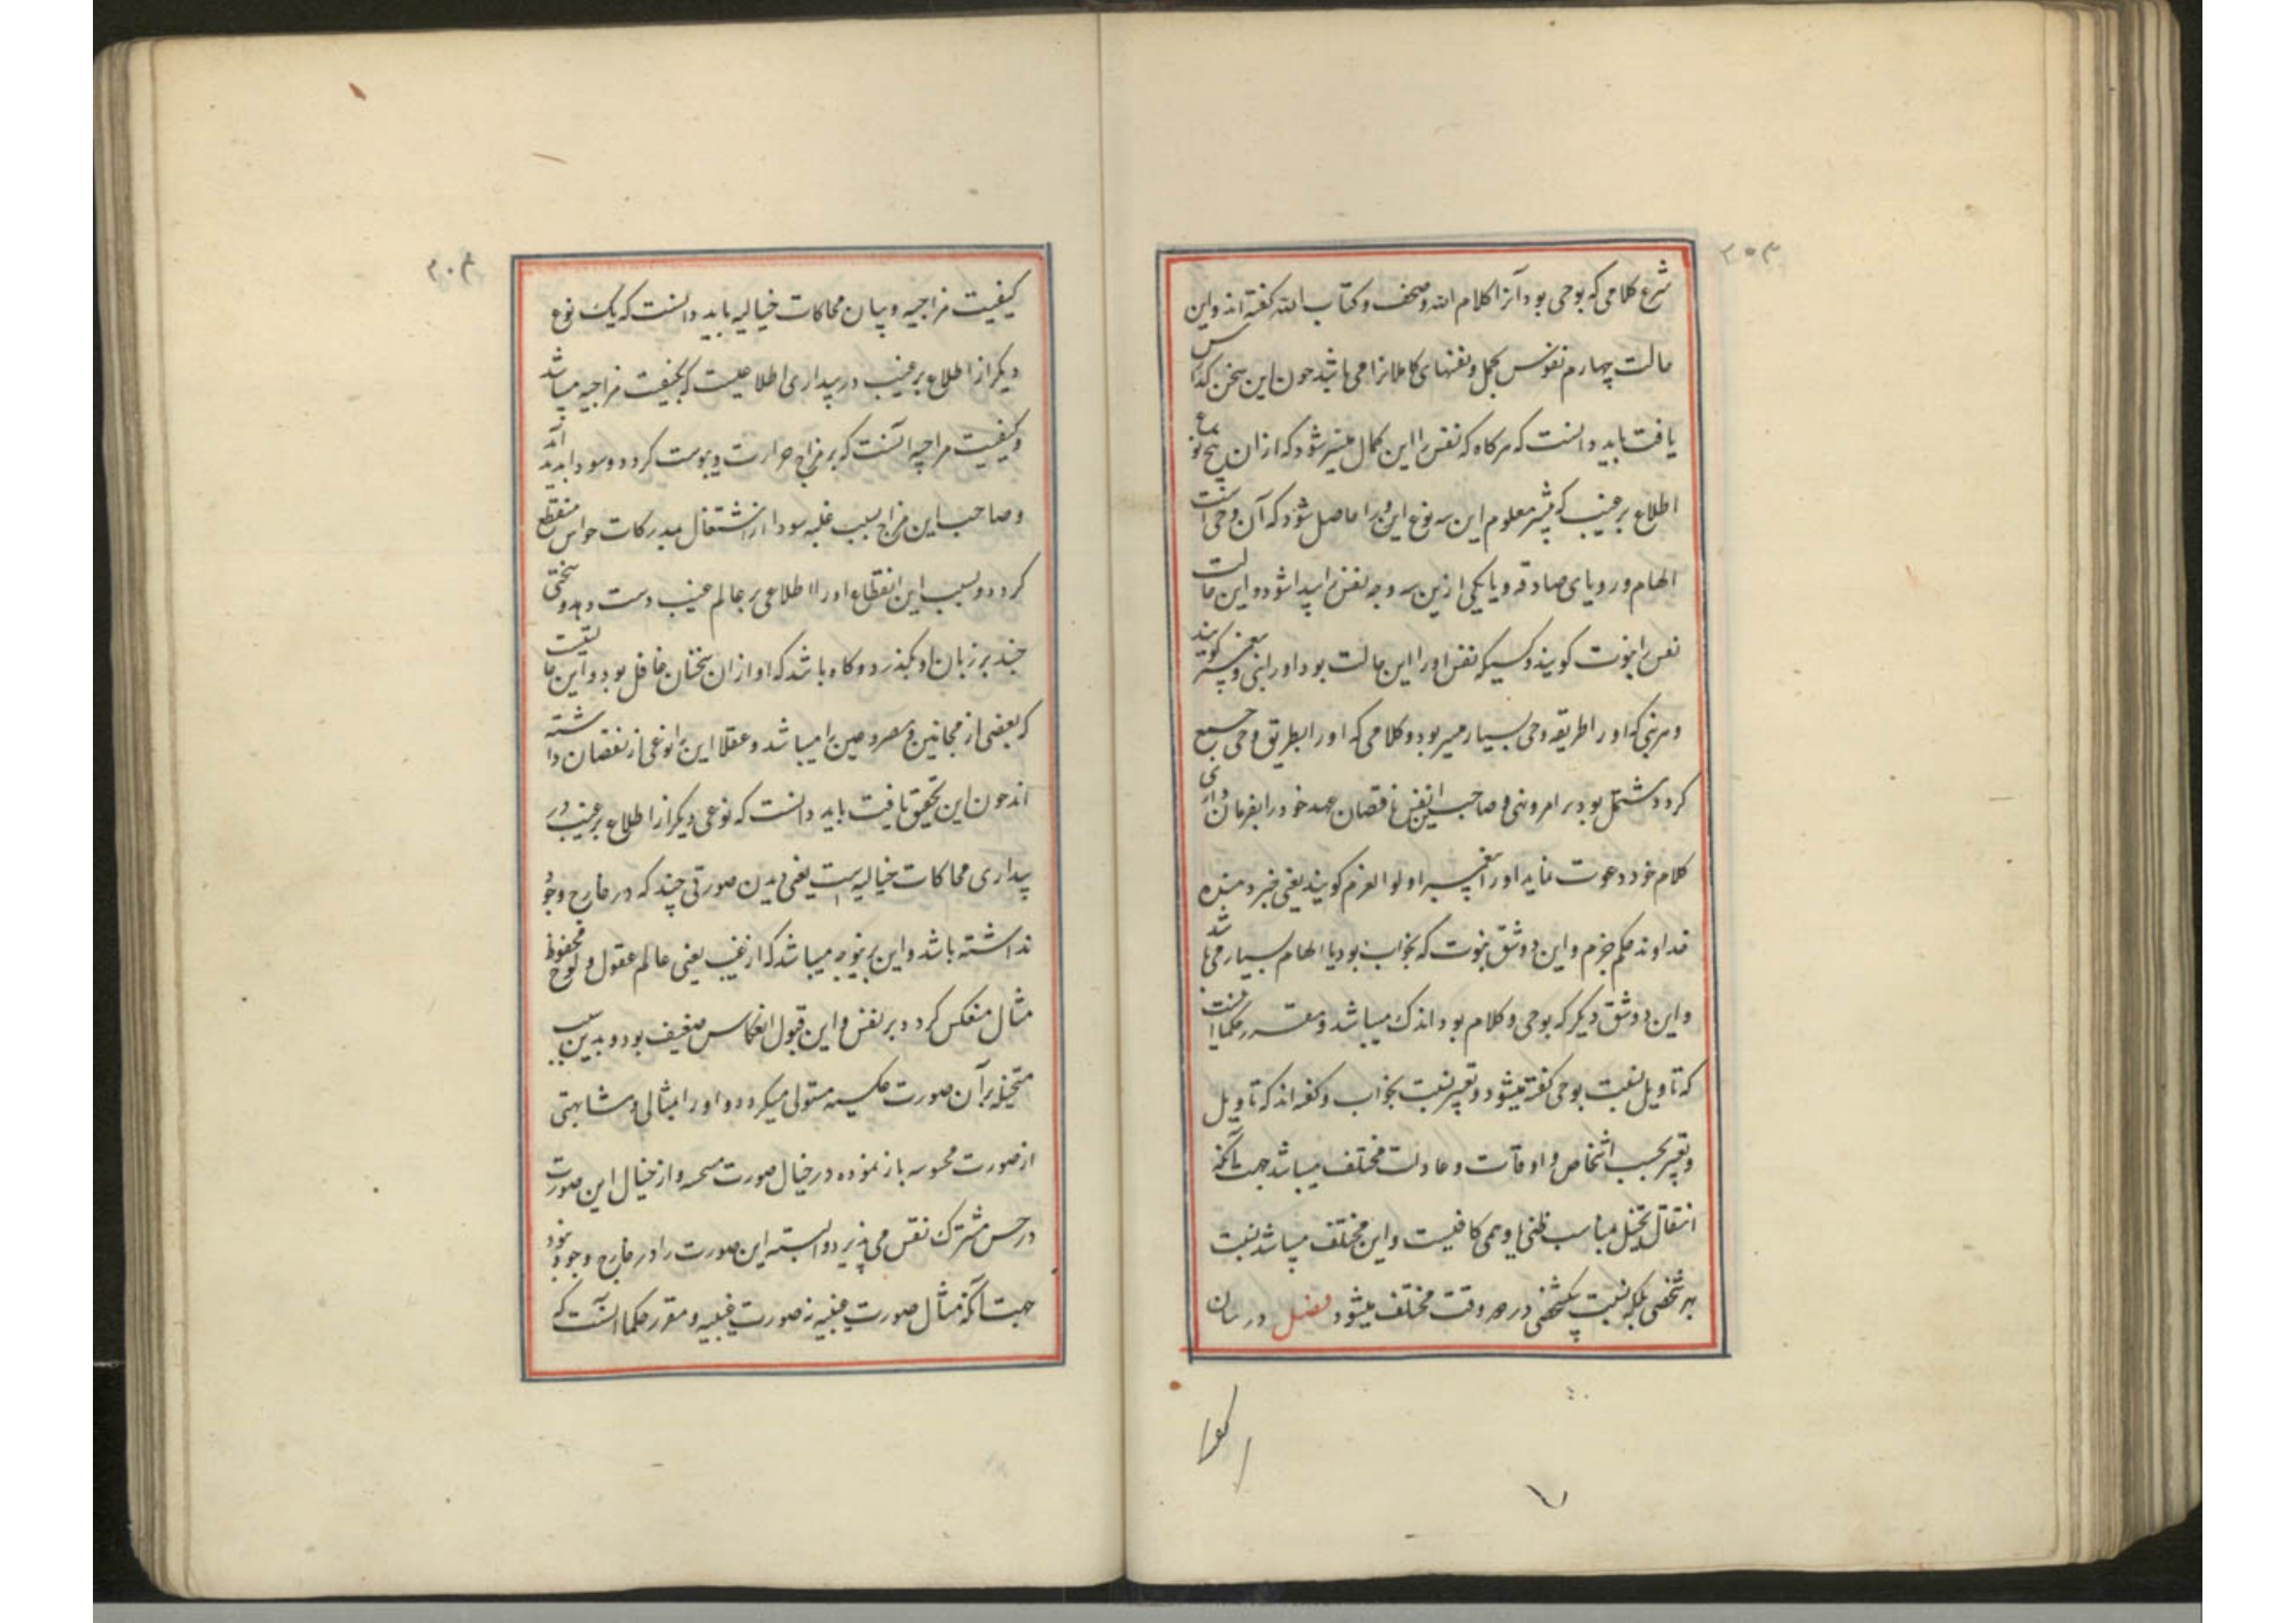 ۲۰۳
شرع کلامی که بوحی بود آنرا کلام الله و صحف و کتاب الله گفته اند و این
حالت چهارم نفوس کمل و نفسهای کاملانرا می باشد چون این سخن گذارش
یافت باید دانست که هرکاه که نفس را این کمال میسر شود که ازان پنج نوع
اطلاع بر غیب که پیشتر معلوم این سه نوع این را حاصل شود که آن وحی است
الهام و رویای صادقه و یا یکی ازین سه وجه نفس را پیدا شود و این حالت
نفس را نبوت کویند و کسیکه نفس او را این حالت بود او را نبی و پیغمبر کویند
و هر نبی که او را طریقه وحی بسیار میسر بود و کلامی که او را بطریق وحی جمع
کردد مشتمل بود بر امر و نهی و صاحب این نفس ناقصان عهد خود را بفرمان داری
کلام خود دعوت نماید او را پیغمبر اولوا العزم کویند یعنی خبر دهنده
خداوند حکم جزم و این دو شق نبوت که بخواب بود یا الهام بسیار می باشد
و این دو شق دیکر که بوحی و کلام بود اندک میباشد و مقرر حکما است
که تاویل نسبت بوحی کفته میشود و تعبیر نسبت بخواب و کفته اند که تاویل
و تعبیر بحسب اشخاص و اوقات و عادات مختلف میباشد جهت آنکه
انتقال تخیل مناسب ظنی یا وهمی کافیست و این مختلف میباشد نسبت
بهر شخصی بلکه نسبت بیکشخصی در هر وقت مختلف میشود فصل در بیان
۲۰۴
کیفیت مزاجیه و بیان محاکات خیالیه باید دانست که یک نوع
دیکر از اطلاع بر غیب در بیداری اطلاعیست که بکیفیت مزاجیه میباشد
و کیفیت مزاجیه آنست که بر مزاج حرارت و یبوست کردد و سودا پدید آید
و صاحب این مزاج بسبب غلبه سودا از اشتغال بمدرکات حواس منقطع
کردد و بسبب این انقطاع او را اطلاعی بر عالم غیب دست دهد و سخنی
چند بر زبان او بکذرد و کاه باشد که او ازان سخنان غافل بود و این حالتیست
که بعضی از مجانین و مصروعین را میباشد و عقلا این را نوعی از نقصان داشته
اند چون این تحقیق یافت باید دانست که نوعی دیکر از اطلاع بر غیب در
بیداری محاکات خیالیه است یعنی دیدن صورتی چند که در خارج وجود
نداشته باشد و این برینوجه میباشد که از غیب یعنی عالم عقول و لوح محفوظ
مثال منعکس کردد بر نفس و این قبول انعکاس ضعیف بود و بدین سبب
متخیله بر آن صورت عکسیه مستولی میکردد و او را بمثالی و مشابهتی
از صورت محسوسه باز نموده در خیال صورت و از خیال این صورت
در حس مشترک نقش می پذیرد و البته این صورت را در خارج وجود نبود
جهت آنکه مثال صورت غیبیه نه صورت غیبیه و مقرر حکما آنست که